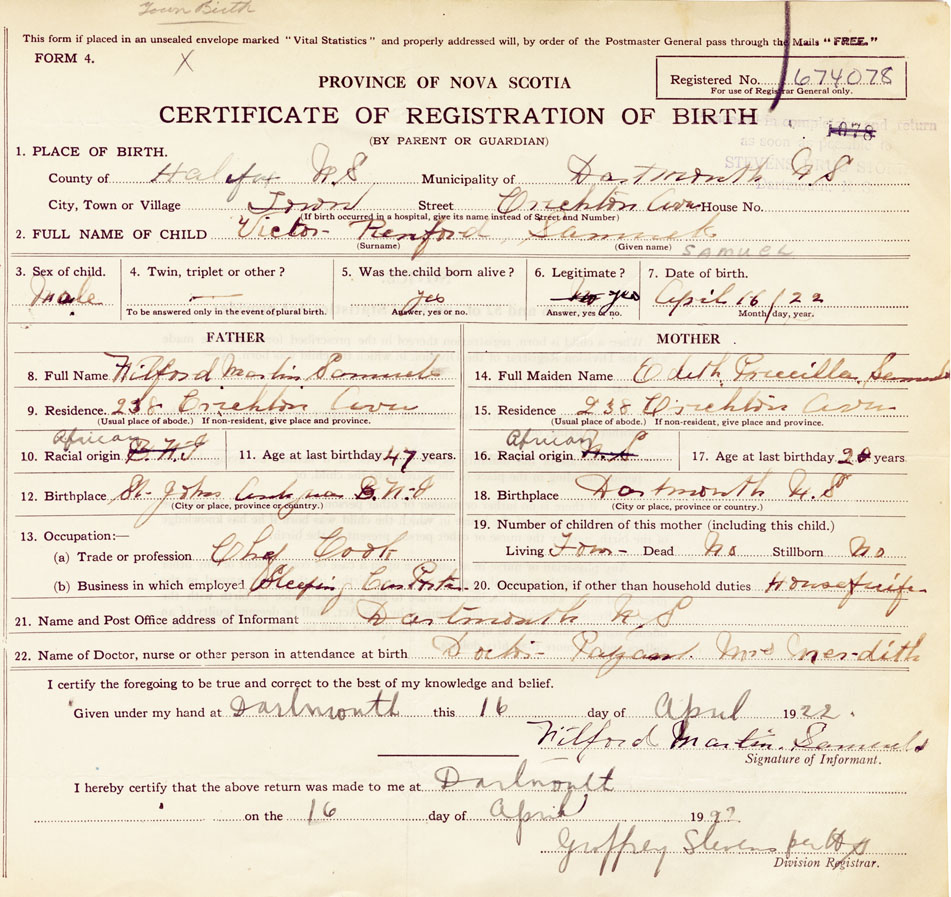 Town Birth
This form if placed in an unsealed envelope marked "Vital Statistics" and properly addressed will, by order of the Postmaster General pass through the Mails "FREE."
FORM 4. X
PROVINCE OF NOVA SCOTIA
Registered No. 674078
For use of Registrar General only.
CERTIFICATE OF REGISTRATION OF BIRTH
1078
(BY PARENT OR GUARDIAN)
as soon as possible to
1. PLACE OF BIRTH.
County of Halifax N.S Municipality of Dartmouth N S
City, Town or Village Town Street Crichton Aven House No.
(If birth occurred in a hospital, give its name instead of Street and Number)
2. FULL NAME OF CHILD Victor Renford, Samuels
(Surname) (Given name) SAMUEL
3. Sex of child. 4. Twin, triplet or other? 5. Was the child born alive? 6. Legitimate? 7. Date of birth.
Male — yes No yes April 16/22
To be answered only in the event of plural birth. Answer, yes or no. Answer, yes or no. Month, day, year.
FATHER MOTHER
8. Full Name Wilford Martin Samuels 14. Full Maiden Name Edith Priecilla Samuels
9. Residence. 238 Crichton Aven 15. Residence 238 Crichton Aven
(Usual place of abode.) If non-resident, give place and province. (Usual place of abode.) If non-resident, give place and province.
African African
10. Racial origin B.W.I 11. Age at last birthday 47 years. 16. Racial origin N.S 17. Age at last birthday 28 years
12. Birthplace St. Johns Antigua B.W.I 18. Birthplace Dartmouth N.S
(City or place, province or country.) (City or place, province or country.)
13. Occupation:— 19. Number of children of this mother (including this child.)
(a) Trade or profession Chef Cook Living Four Dead No Stillborn No
(b) Business in which employed Sleeping Car Porter 20. Occupation, if other than household duties Housewife
21. Name and Post Office address of Informant Dartmouth N S
22. Name of Doctor, nurse or other person in attendance at birth Doctor Payant. Mrs Meredith
I certify the foregoing to be true and correct to the best of my knowledge and belief.
Given under my hand at Dartmouth this 16 day of April 1922.
Wilford Martin. Samuels
Signature of Informant.
I hereby certify that the above return was made to me at Dartmouth
on the 16 day of April 1922
Geoffrey Stevens per
Division Registrar.